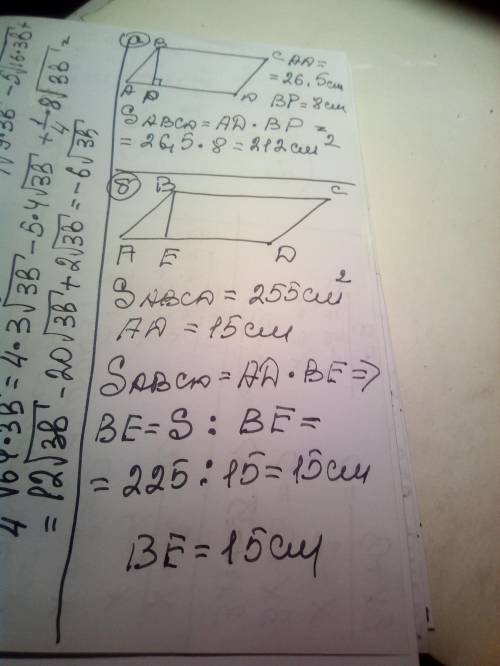 B C AD =
= 26,5см
A P D BP = 8см
SABCD = AD · BP =
= 26,5 · 8 = 212см²
8 B C
A E D
SABCD = 255см²
AD = 15см
SABCD = AD · BE =>
BE = S : BE =
= 225 : 15 = 15см
BE = 15см
= 4·3√3B - 5·4√3B + 1/4·8√3B =
= 12√3B - 20√3B + 2√3B = -6√3B